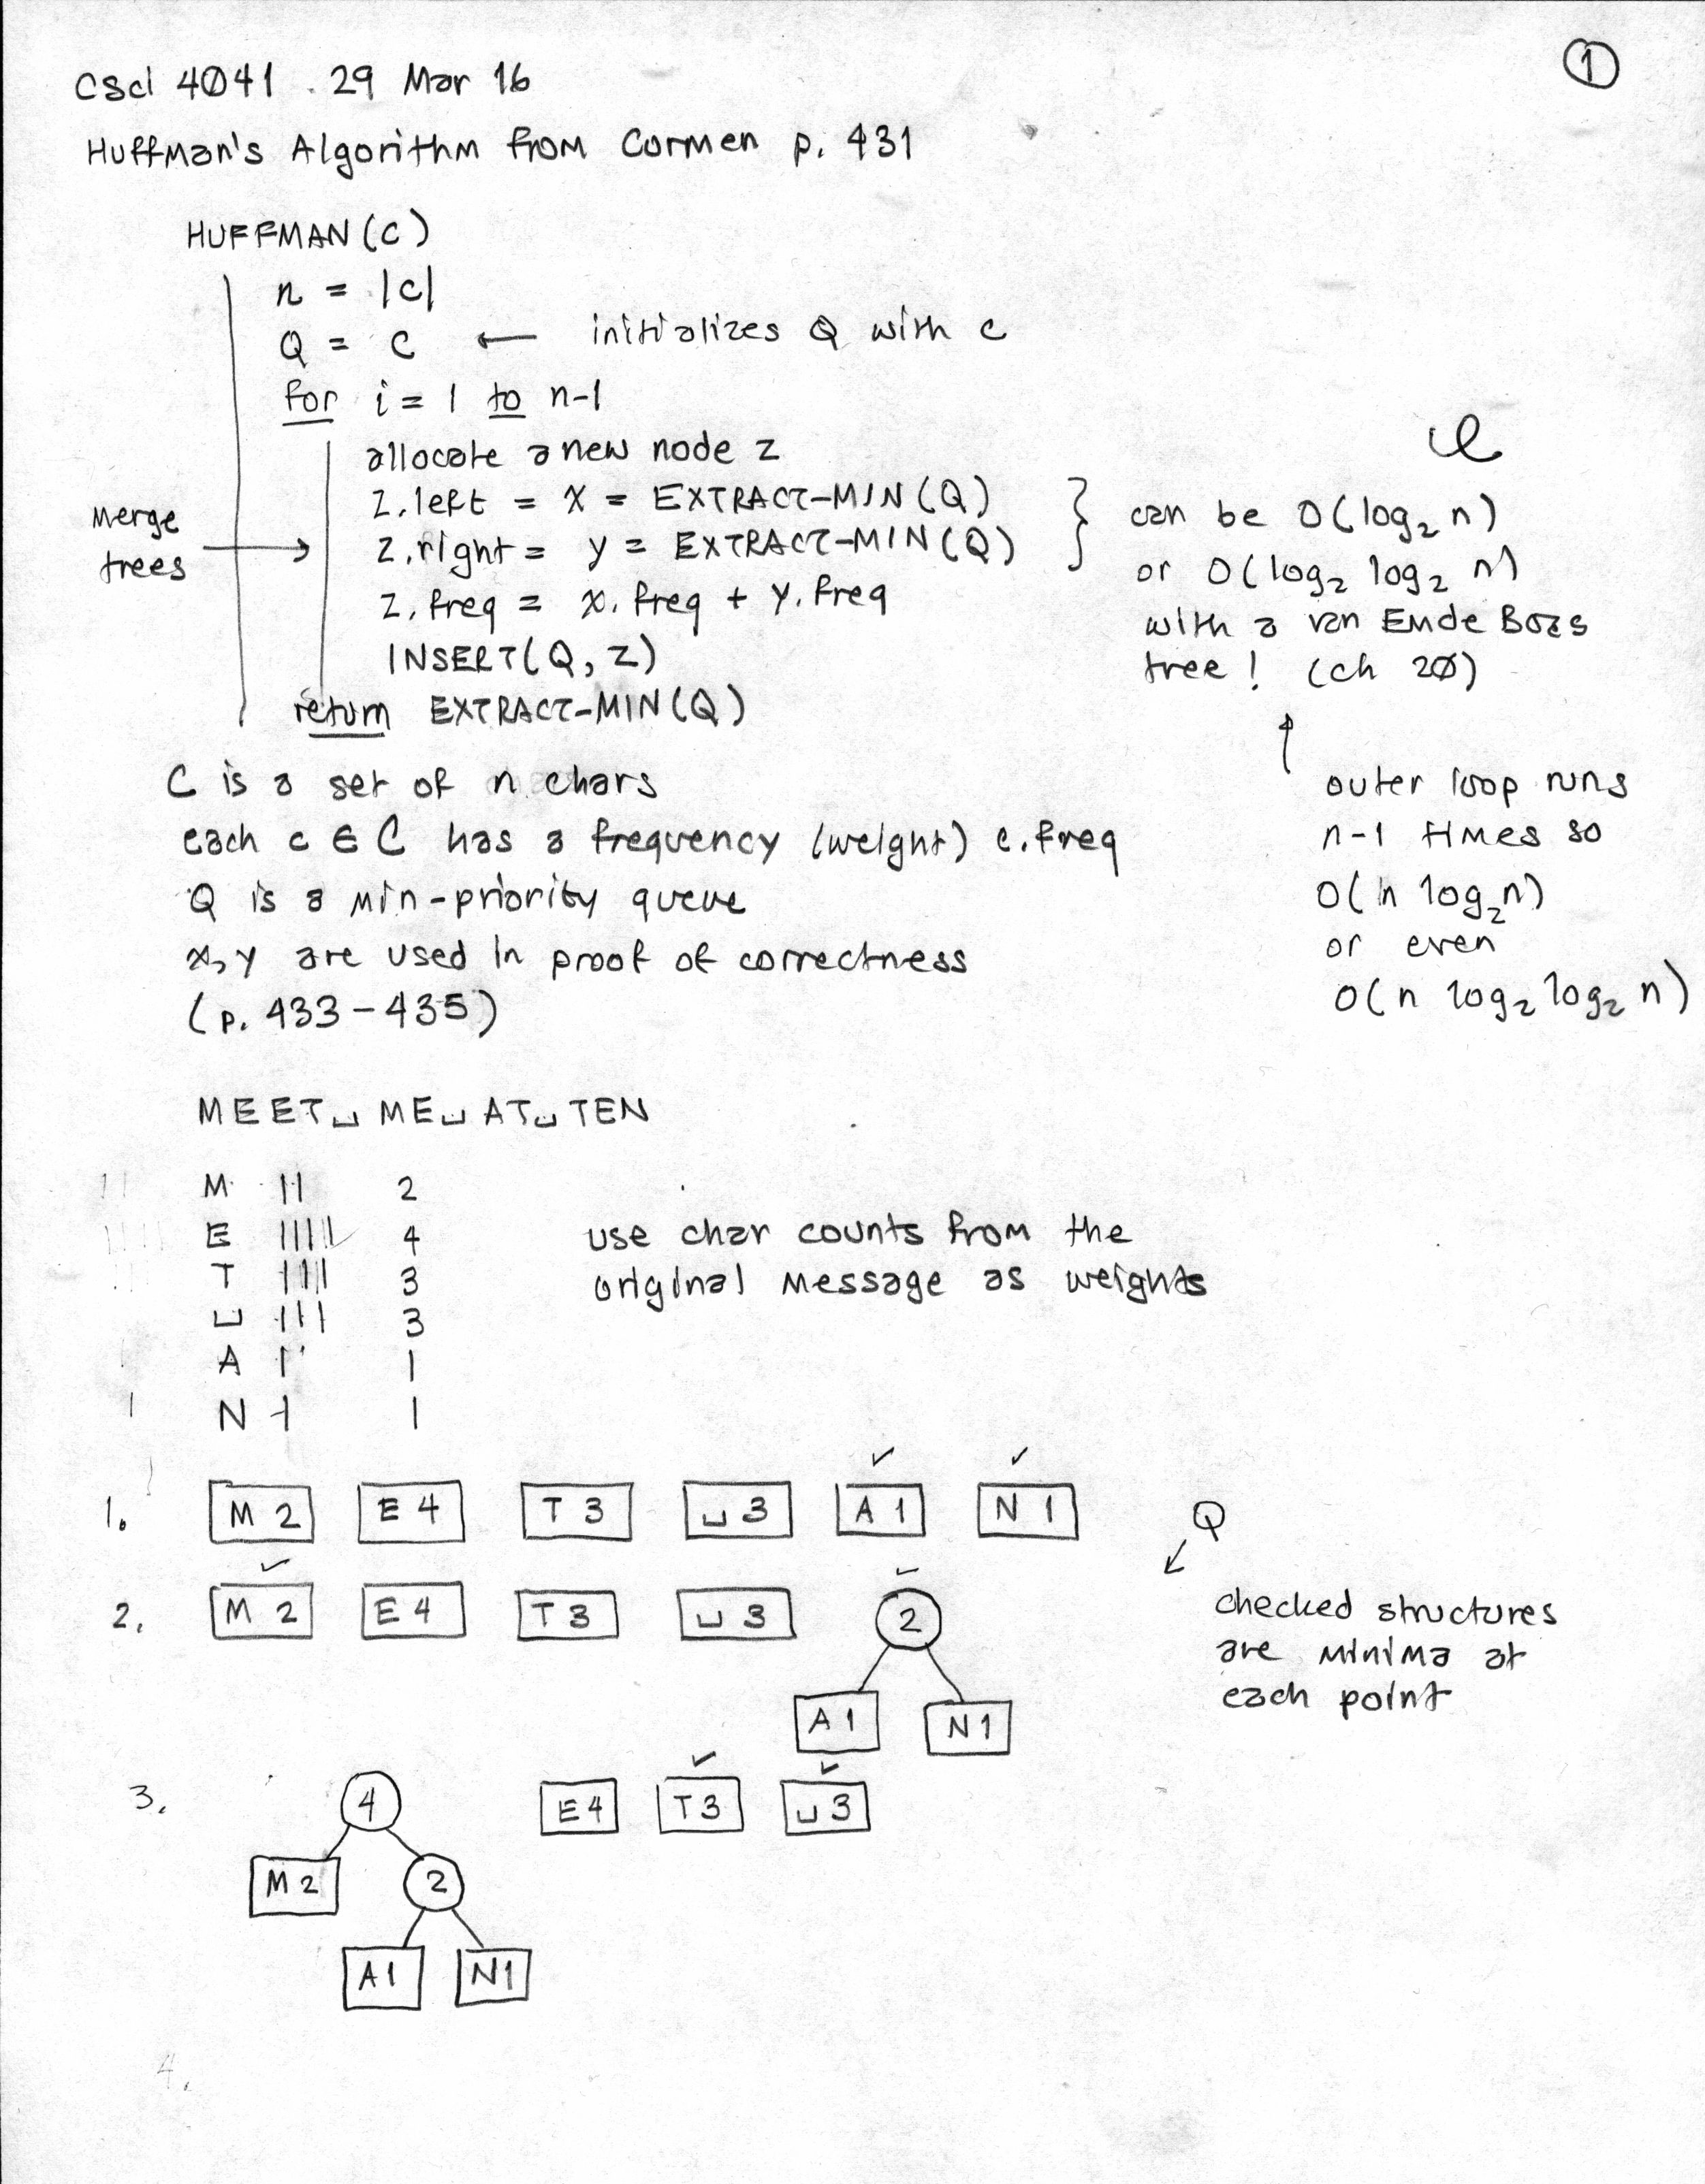 ①
CSCI 4041 . 29 Mar 16
Huffman's Algorithm from Cormen p. 431
HUFFMAN(C)
n = |C|
Q = C ← initializes Q with C
for i = 1 to n-1
allocate a new node z
z.left = x = EXTRACT-MIN(Q)
z.right = y = EXTRACT-MIN(Q)
z.freq = x.freq + y.freq
INSERT(Q, z)
return EXTRACT-MIN(Q)
Merge
trees →
} can be O(log₂ n)
or O(log₂ log₂ n)
with a van Emde Boas
tree! (ch 20)
↑
outer loop runs
n-1 times so
O(n log₂ n)
or even
O(n log₂ log₂ n)
C is a set of n chars
each c ∈ C has a frequency (weight) c.freq
Q is a min-priority queue
x, y are used in proof of correctness
(p. 433-435)
MEET␣ME␣AT␣TEN
M || 2
E |||| 4
T |||| 3
␣ ||| 3
A | 1
N | 1
use char counts from the
original message as weights
1. M 2 E 4 T 3 ␣ 3 ✓ A 1 ✓ N 1
Q
↙
checked structures
are minima at
each point
2. ✓ M 2 E 4 T 3 ␣ 3 ✓ 2
A 1 N 1
3. 4 E 4 ✓ T 3 ✓ ␣ 3
M 2 2
A 1 N 1
4.